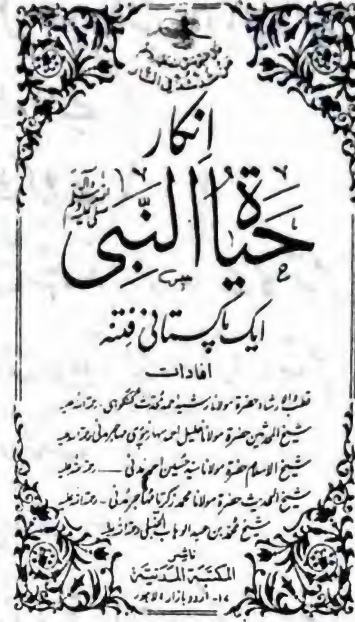 انکار
حیاۃ النبی
ایک پاکستانی فتنہ
افادات
قطب الارشاد حضرۃ مولانا رشید احمد محدث گنگوہی رحمۃ اللہ علیہ
شیخ المحدثین حضرۃ مولانا خلیل احمد سہارنپوری مہاجر مدنی رحمۃ اللہ علیہ
شیخ الاسلام حضرۃ مولانا سید حسین احمد مدنی — رحمۃ اللہ علیہ
شیخ الحدیث حضرۃ مولانا محمد زکریا مہاجر مدنی - رحمۃ اللہ علیہ
شیخ محمد بن عبدالوہاب الحنبلی رحمۃ اللہ علیہ
ناشر
المکتبۃ المدنیۃ
۱۷- اردو بازار لاہور